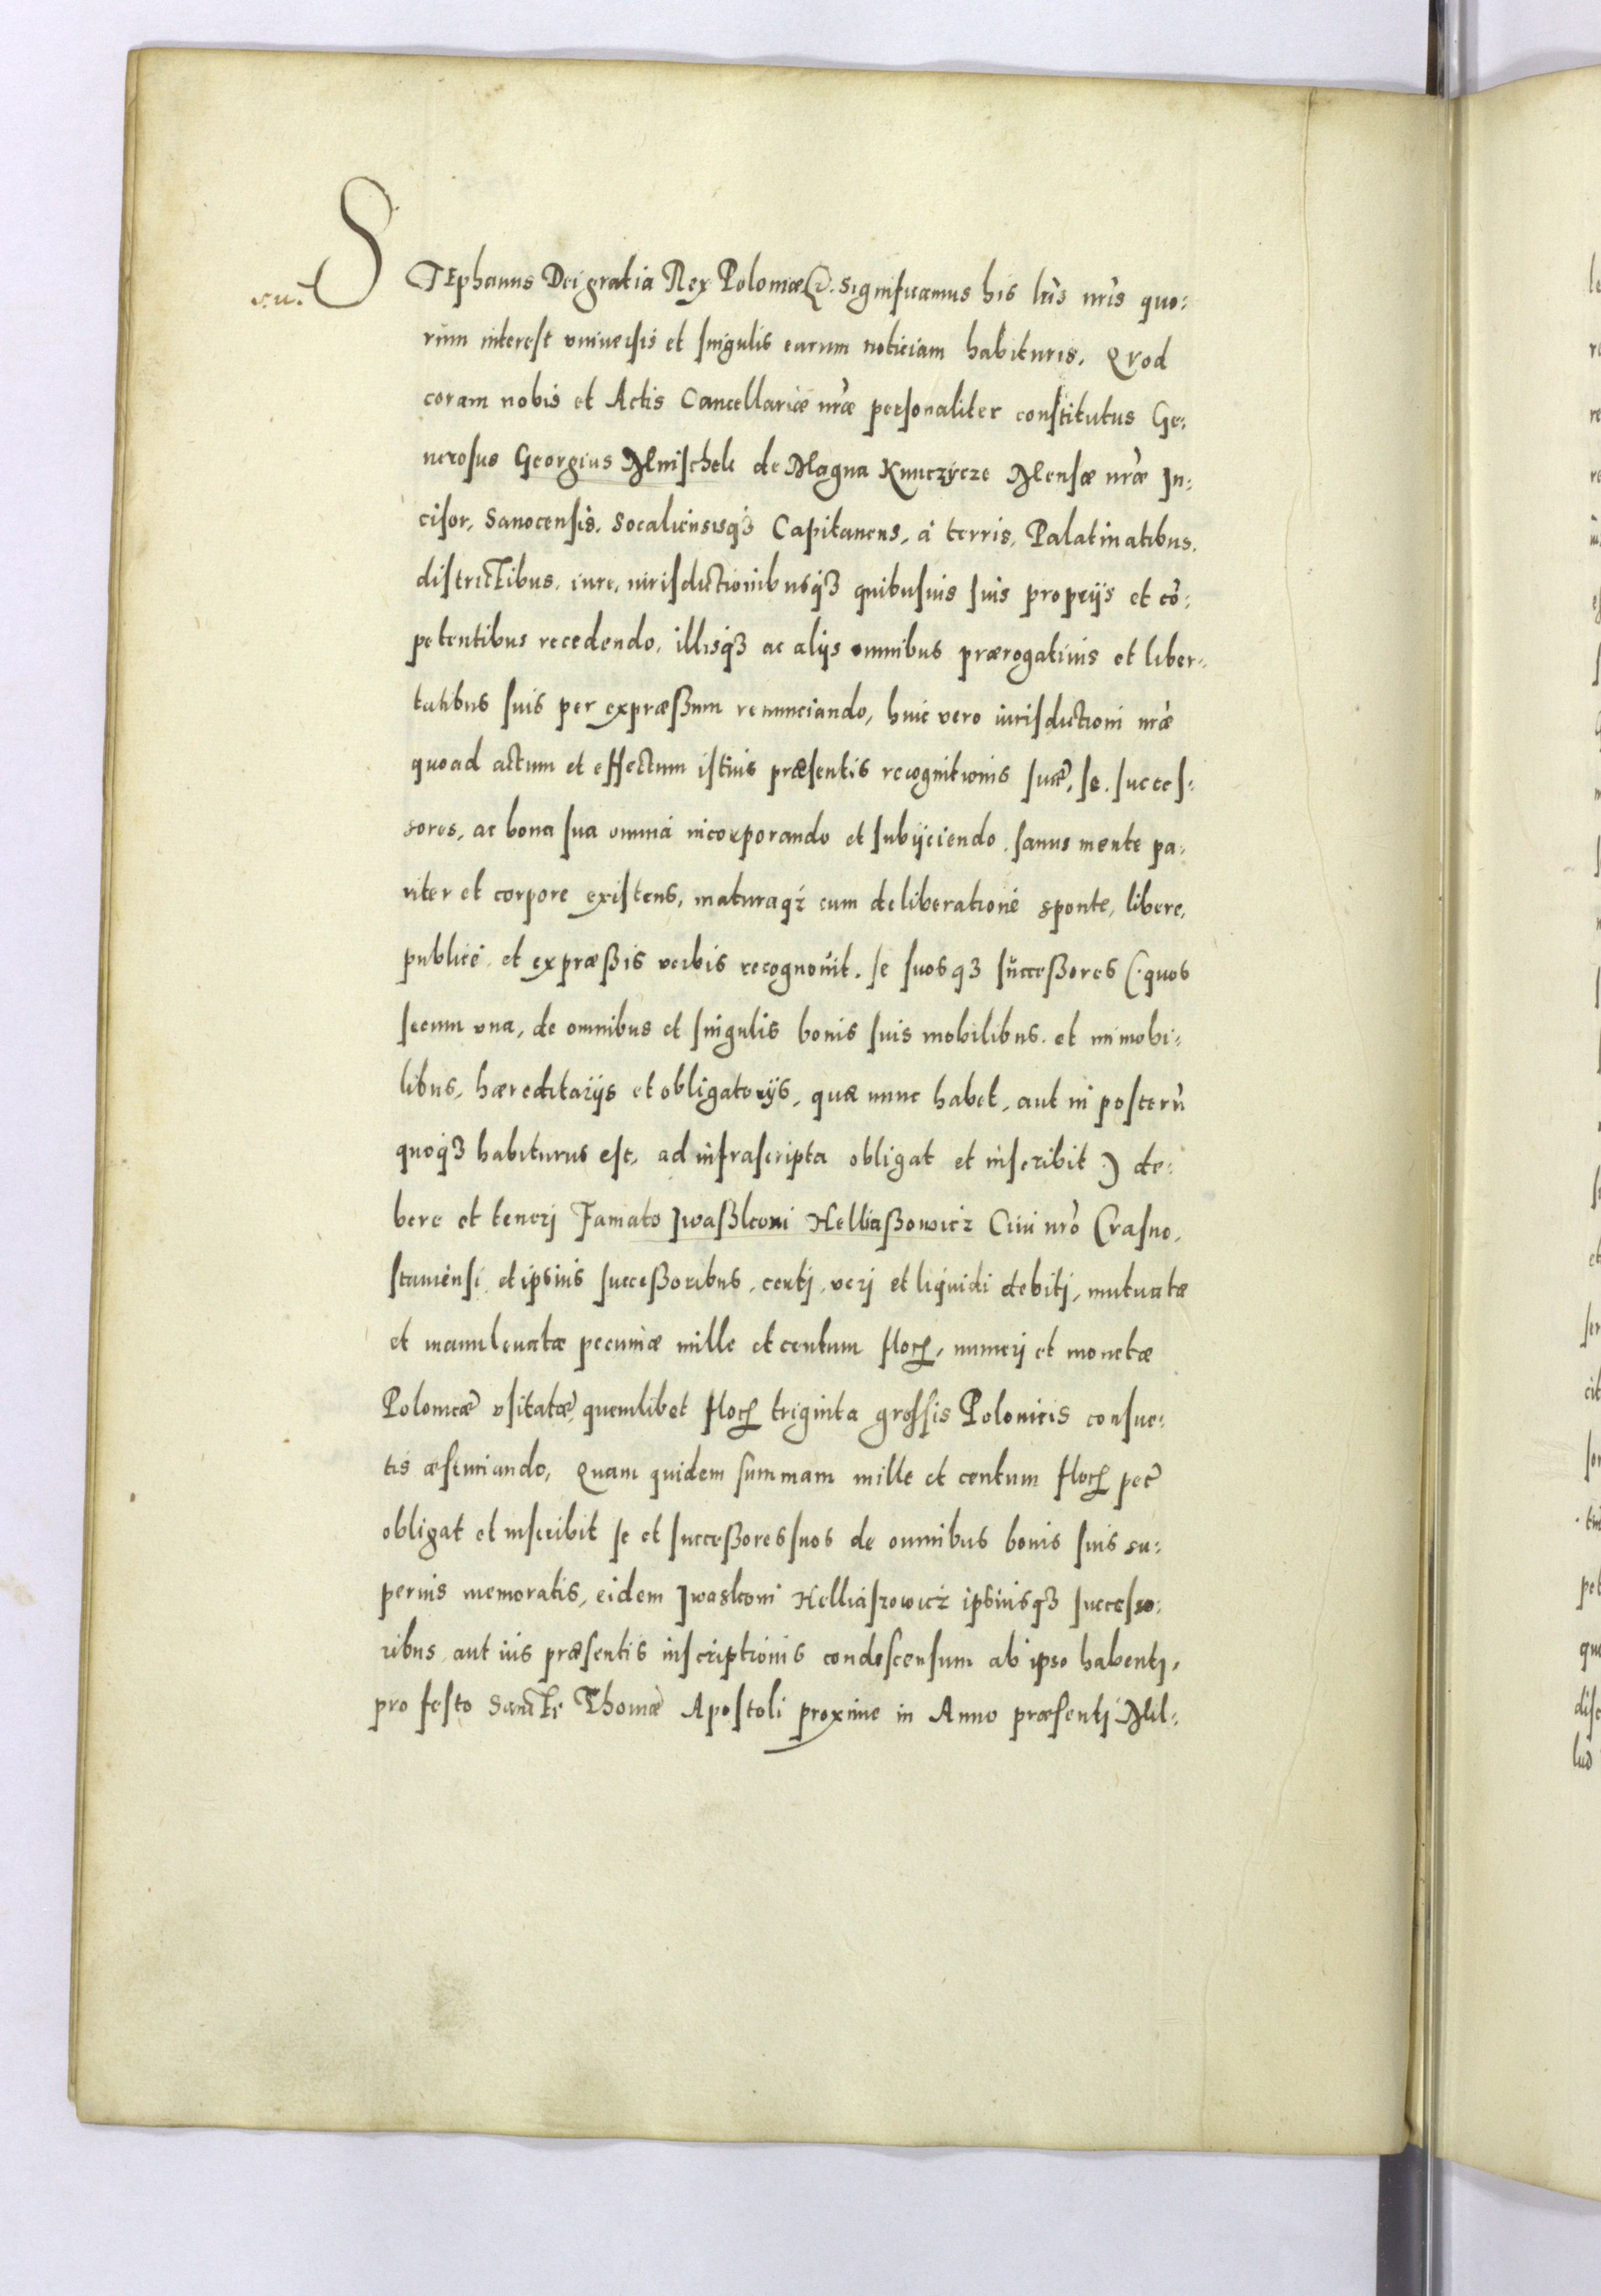 STEphanus Dei gratia Rex Poloniæ &c. Significamus his lr̃is nr̃is quo:
rum interest vniuersis et singulis earum noticiam habituris. Quod
coram nobis et Actis Cancellariæ nr̃æ personaliter constitutus Ge:
nerosus Georgius Mnischek de Magna Kunczycze Mensæ nr̃æ In:
cisor, Sanocensis, Socaliensisq3 Capitaneus, à terris, Palatinatibus,
districtibus, iure, iurisdictionibusq3 quibusuis suis proprijs et cõ:
petentibus recedendo, illisq3 ac alijs omnibus prærogatiuis et liber:
tatibus suis per expræßum renunciando, huic vero iurisdictioni nr̃æ
quoad actum et effectum istius præsentis recognitionis suæ, se, succes:
sores, ac bona sua omnia incorporando et subijciendo, sanus mente pa:
riter et corpore existens, maturaq3 cum deliberatione sponte, libere,
publicè et expræßis verbis recognouit. se suosq3 succeßores (: quos
secum vna, de omnibus et singulis bonis suis mobilibus et immobi:
libus, hæreditarijs et obligatorijs, quæ nunc habet, aut in posterũ
quoq3 habiturus est, ad infrascripta obligat et inscribit :) de:
bere et tenerj Famato Iwaßkoni Helliaßowicz Ciui nr̃o Crasno:
stauiensi et ipsius succeßoribus, certj, verj et liquidi debitj, mutuatæ
et manuleuatæ pecuniæ mille et centum floꝝ, numerj et monetæ
Poloniæ vsitatæ, quemlibet floꝝ triginta grossis Polonicis consue:
tis æstimando, Quam quidem summam mille et centum floꝝ pec̃
obligat et inscribit se et succeßores suos de omnibus bonis suis su:
perius memoratis, eidem Iwaskoni Helliaszowicz ipsiusq3 successo:
ribus aut ius præsentis inscriptionis condescensum ab ipso habentj,
pro festo Sancti Thomæ Apostoli proxime in Anno præsentj Mil: